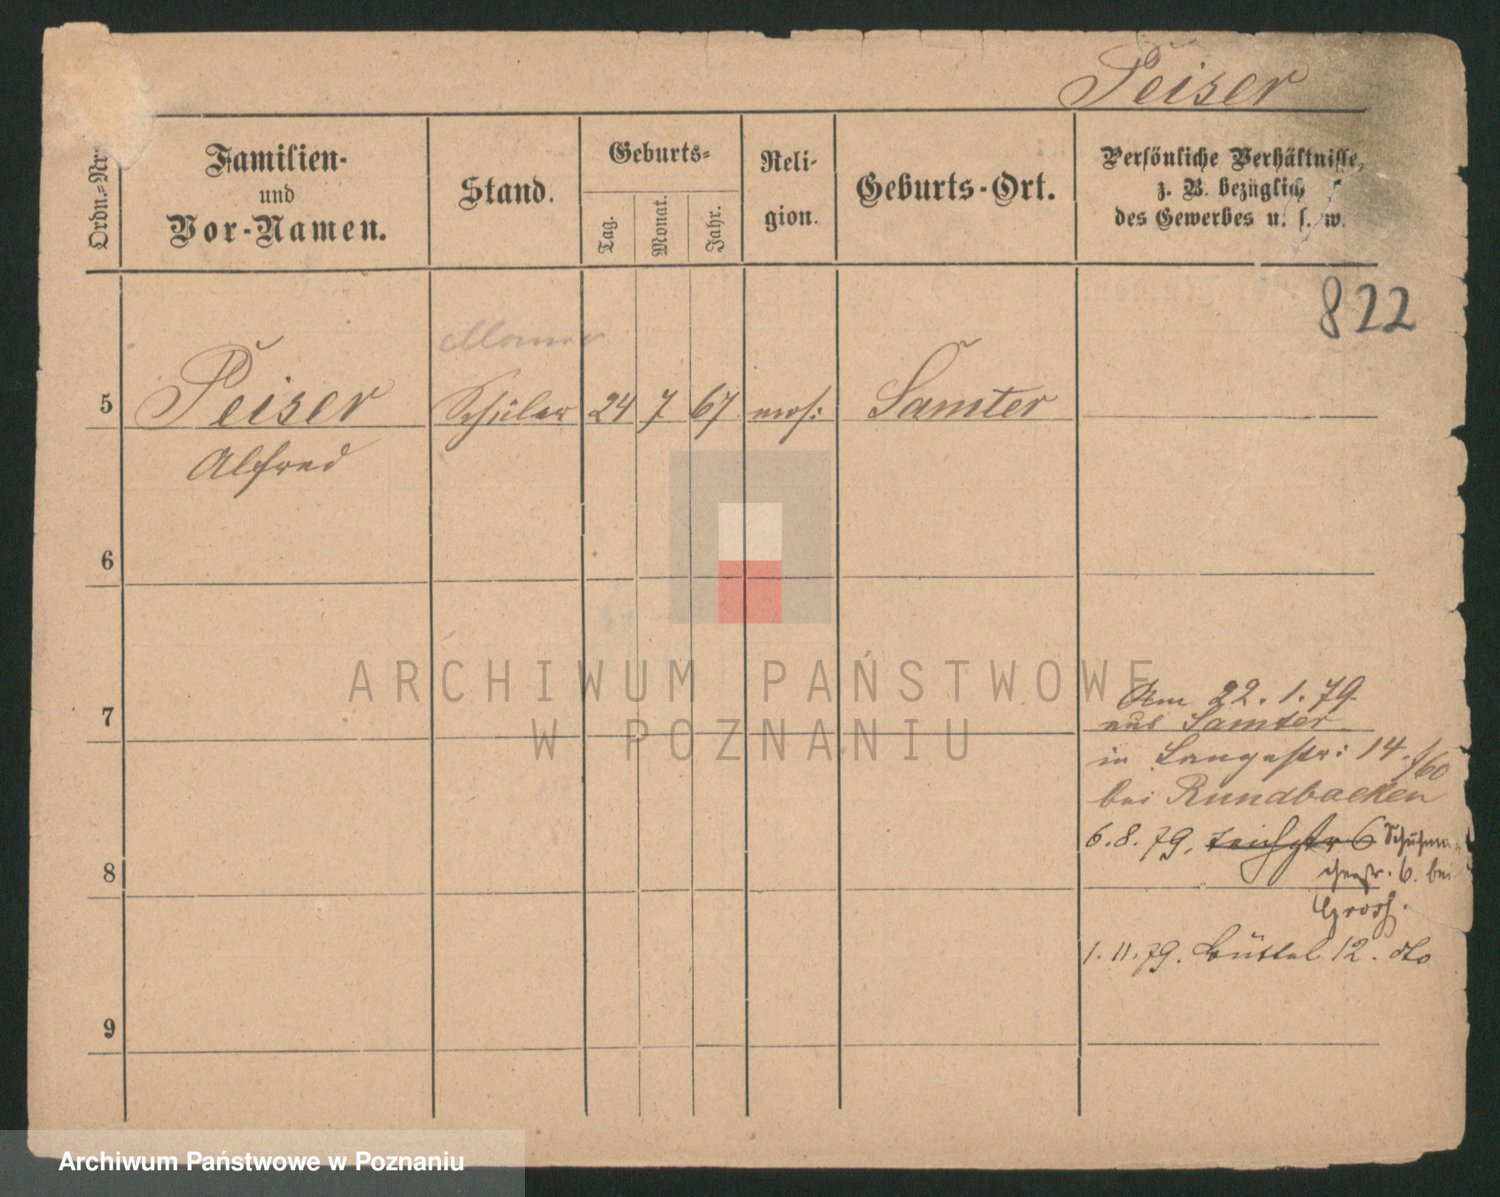 Peiser
Ordn.-Nr.
Familien-
und
Vor-Namen.
Stand.
Geburts-
Tag.
Monat.
Jahr.
Reli-
gion.
Geburts-Ort.
Persönliche Verhältnisse,
z. B. bezüglich
des Gewerbes u. s. w.
822
5 Peiser Schüler 24 7 67 mos: Samter
Alfred
6
ARCHIWUM PAŃSTWOWE
W POZNANIU
7
Am 22.1.79
aus Samter
in Langestr: 14.
bei Rundbacken
6.8.79, Teichstr 6 Schuhma
cherstr. 6. bei
8
1.11.79. Büttel 12. dto
9
Archiwum Państwowe w Poznaniu